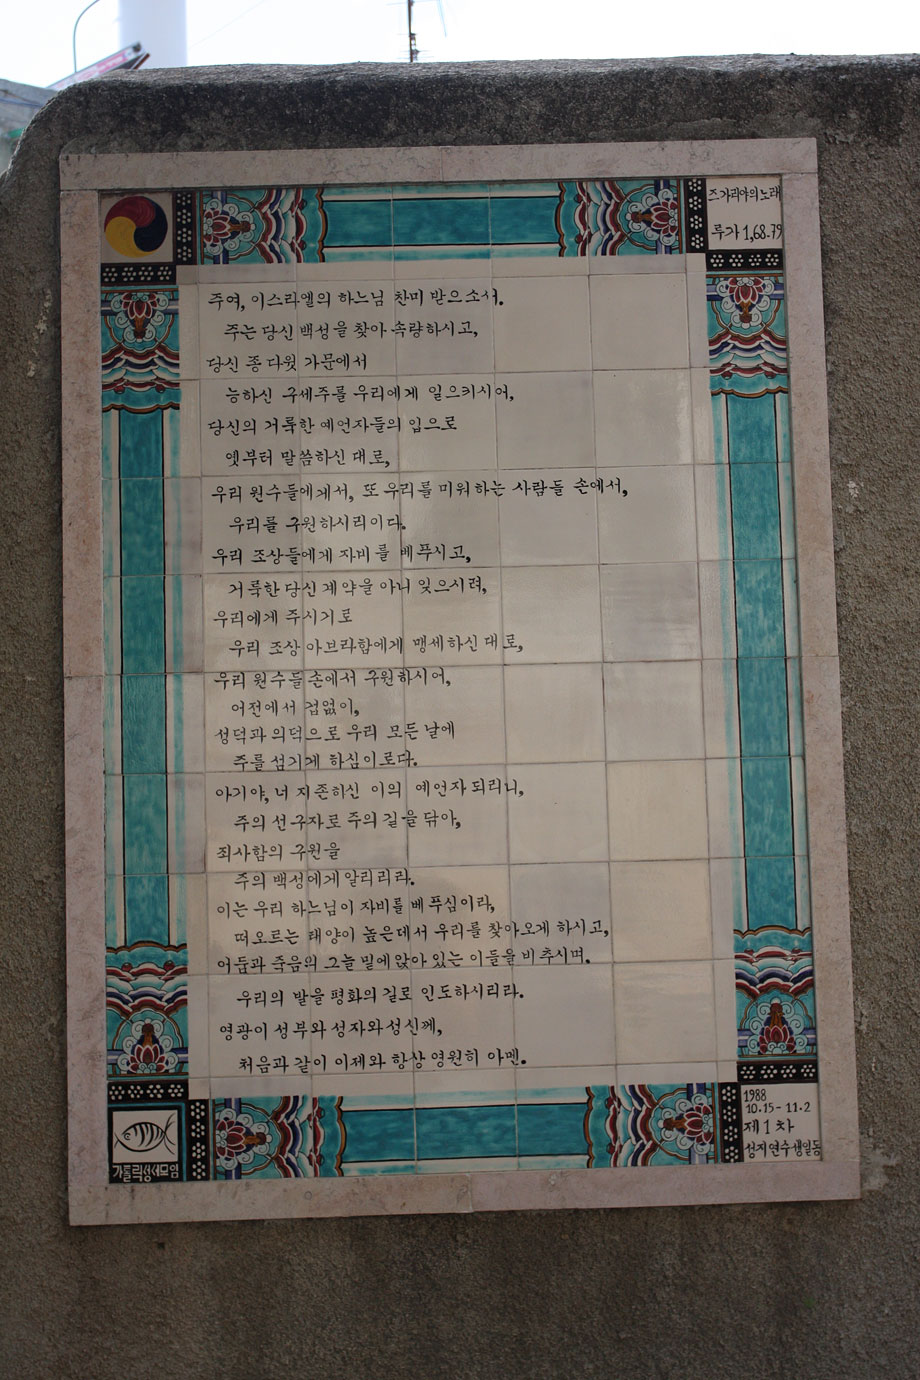 즈가리아의노래
루가 1,68.79
주여, 이스라엘의 하느님 찬미 받으소서.
주는 당신 백성을 찾아 속량하시고,
당신 종 다윗 가문에서
능하신 구세주를 우리에게 일으키시어,
당신의 거룩한 예언자들의 입으로
옛부터 말씀하신 대로,
우리 원수들에게서, 또 우리를 미워하는 사람들 손에서,
우리를 구원하시리이다.
우리 조상들에게 자비를 베푸시고,
거룩한 당신 계약을 아니 잊으시려,
우리에게 주시기로
우리 조상 아브라함에게 맹세하신 대로,
우리 원수들 손에서 구원하시어,
어전에서 겁없이,
성덕과 의덕으로 우리 모든 날에
주를 섬기게 하심이로다.
아기야, 너 지존하신 이의 예언자 되리니,
주의 선구자로 주의 길을 닦아,
죄사함의 구원을
주의 백성에게 알리리라.
이는 우리 하느님이 자비를 베푸심이라,
떠오르는 태양이 높은데서 우리를 찾아오게 하시고,
어둠과 죽음의 그늘 밑에 앉아 있는 이들을 비추시며.
우리의 발을 평화의 길로 인도하시리라.
영광이 성부와 성자와 성신께,
처음과 같이 이제와 항상 영원히 아멘.
가톨릭성서모임
1988
10.15-11.2
제1차
성지연수생일동